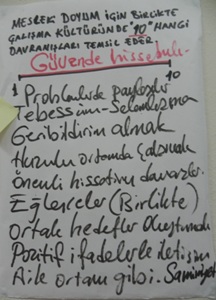 MESLEK DOYUM İÇİN BİRLİKTE
ÇALIŞMA KÜLTÜRÜN'DE "10" HANGİ
DAVRANIŞLARI TEMSİL EDER.
Güvende hissetmek.
1 10
Problemlerde paylaşılır
Tebessüm-Selamlaşma
Geribildirim almak
Huzurlu ortamda çalışmak
Önemli hissettirici davranışlar.
Eğlenceler (Birlikte)
ortak hedefler oluşturmak
Pozitif ifadelerle iletişim
Aile ortamı gibi. Samimiyet